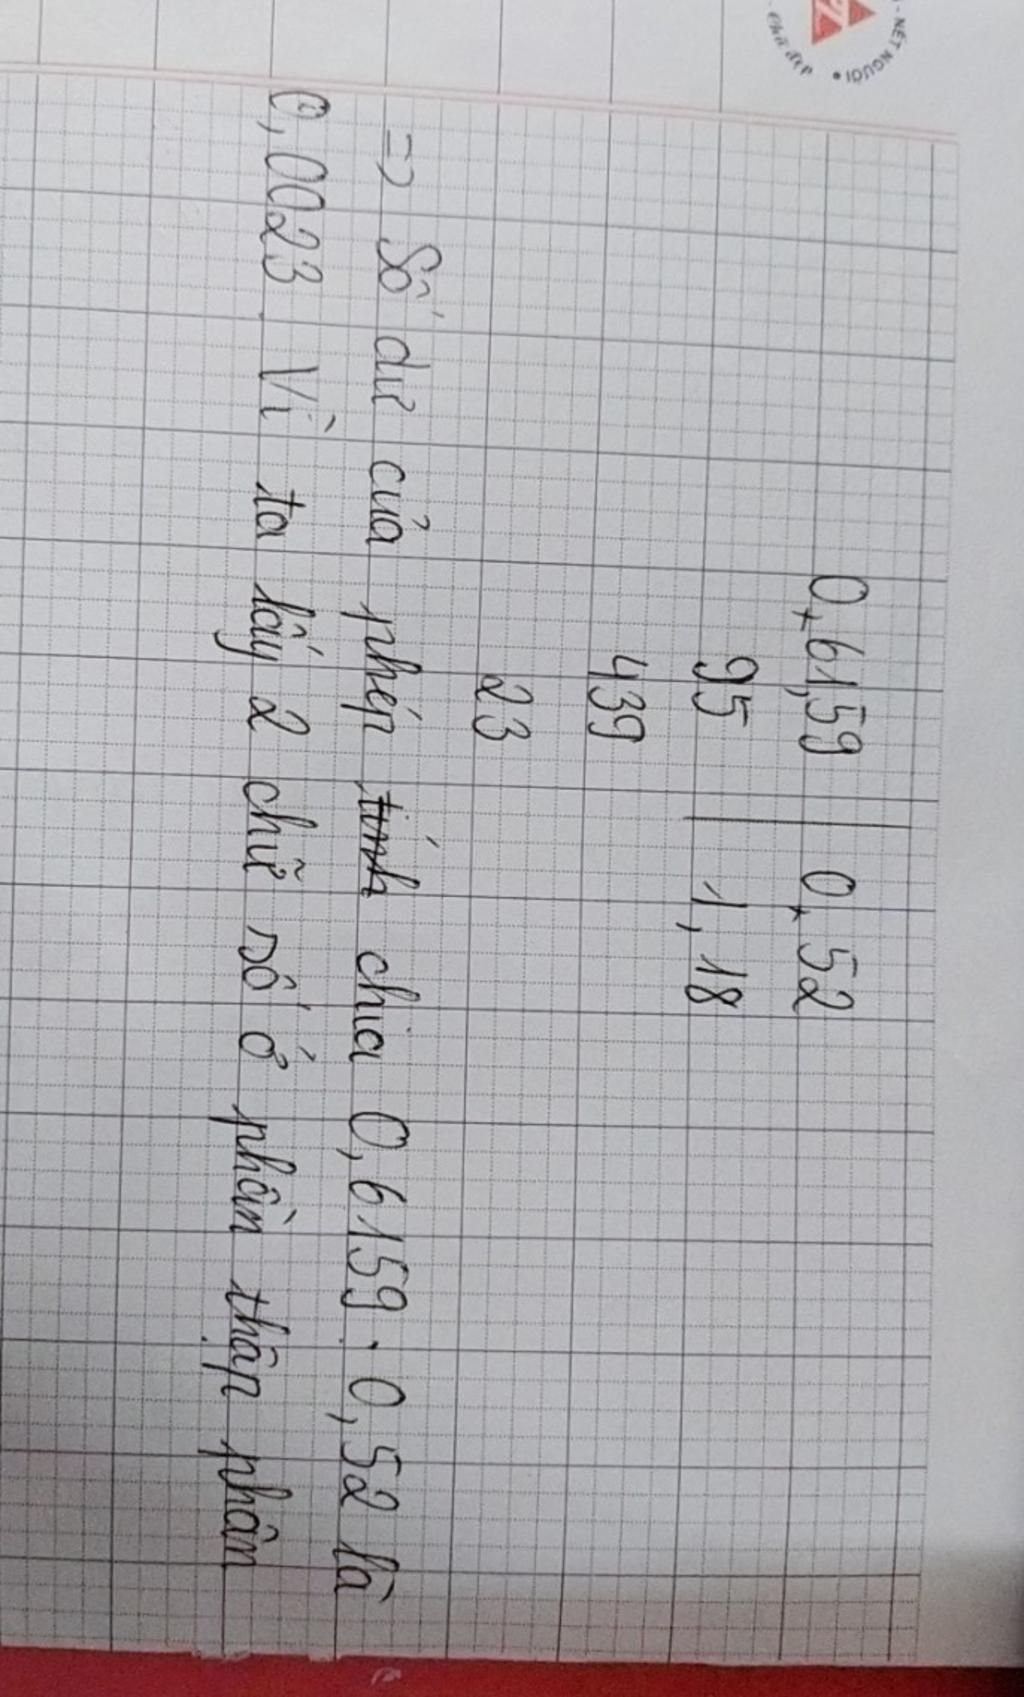 - NÉT NGƯỜI •
Chữ đẹp
0,61,59 0,52
95 1,18
439
23
=> Số dư của phép tính chia 0,6159 : 0,52 là
0,0023 Vì ta lấy 2 chữ số ở phần thập phân